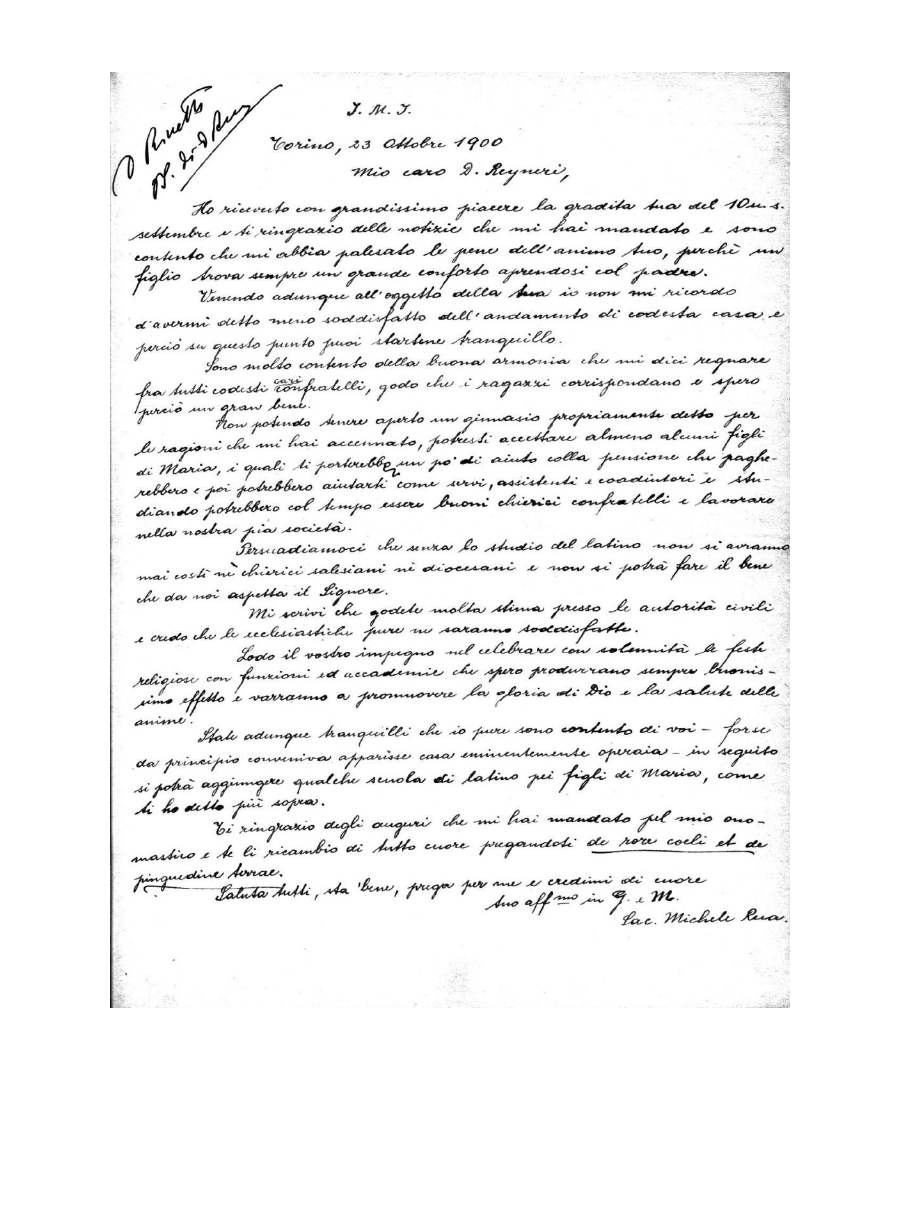 D Rinetti
J. M. J.
Torino, 23 Ottobre 1900
Mio caro D. Reyneri,
Ho ricevuto con grandissimo piacere la gradita tua del 10 u. s.
settembre e ti ringrazio delle notizie che mi hai mandato e sono
contento che mi abbia palesato le pene dell'animo tuo, perchè un
figlio trova sempre un grande conforto aprendosi col padre.
Venendo adunque all'oggetto della tua io non mi ricordo
d'avermi detto meno soddisfatto dell'andamento di codesta casa e
perciò su questo punto puoi startene tranquillo.
Sono molto contento della buona armonia che mi dici regnare
fra tutti codesti cari confratelli, godo che i ragazzi corrispondano e spero
perciò un gran bene.
Non potendo tenere aperto un ginnasio propriamente detto per
le ragioni che mi hai accennato, potresti accettare almeno alcuni figli
di Maria, i quali ti porterebbe un po' di aiuto colla pensione che paghe-
rebbero e poi potrebbero aiutarti come servi, assistenti e coadiutori e stu-
diando potrebbero col tempo essere buoni chierici confratelli e lavorare
nella nostra pia società.
Persuadiamoci che senza lo studio del latino non si avranno
mai costì nè chierici salesiani nè diocesani e non si potrà fare il bene
che da noi aspetta il Signore.
Mi scrivi che godete molta stima presso le autorità civili
e credo che le ecclesiastiche pure ne saranno soddisfatte.
Lodo il vostro impegno nel celebrare con solennità le feste
religiose con funzioni ed accademie che spero produrrano sempre buonis-
simo effetto e varranno a promuovere la gloria di Dio e la salute delle
anime.
State adunque tranquilli che io pure sono contento di voi - forse
da principio conveniva apparisse casa eminentemente operaia - in seguito
si potrà aggiungere qualche scuola di latino pei figli di Maria, come
ti ho detto più sopra.
Ti ringrazio degli auguri che mi hai mandato pel mio ono-
mastico e te li ricambio di tutto cuore pregandoti de rore coeli et de
pinguedine terrae.
Saluta tutti, sta bene, prega per me e credimi di cuore
tuo aff mo in G. e M.
Sac. Michele Rua.